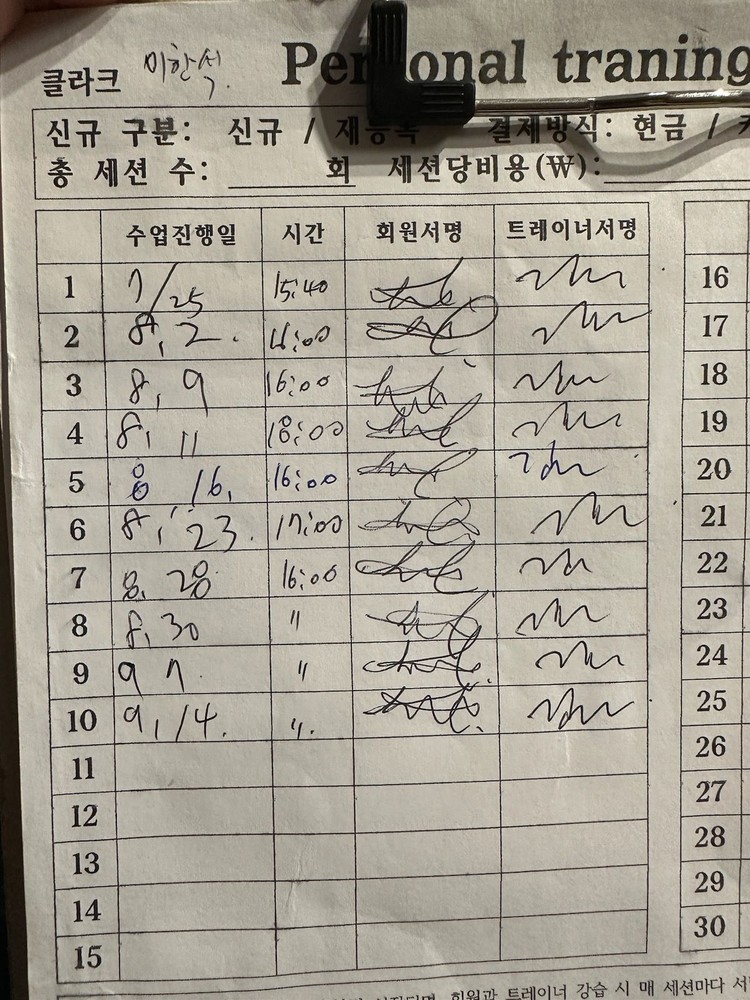 클라크 이한석 Pe onal traning
신규 구분: 신규 / 재등록 결제방식: 현금 /
총 세션 수: ______ 회 세션당비용(₩):
수업진행일 시간 회원서명 트레이너서명
1 7/25 15:40 16
2 8, 2. 16:00 17
3 8, 9 16:00 18
4 8, 11 18:00 19
5 8 16, 16:00 20
6 8, 23. 17:00 21
7 8, 28 16:00 22
8 8, 30 〃 23
9 9 7. 〃 24
10 9, 14. 〃. 25
11 26
12 27
13 28
14 29
15 30
회원과 트레이너 강습 시 매 세션마다